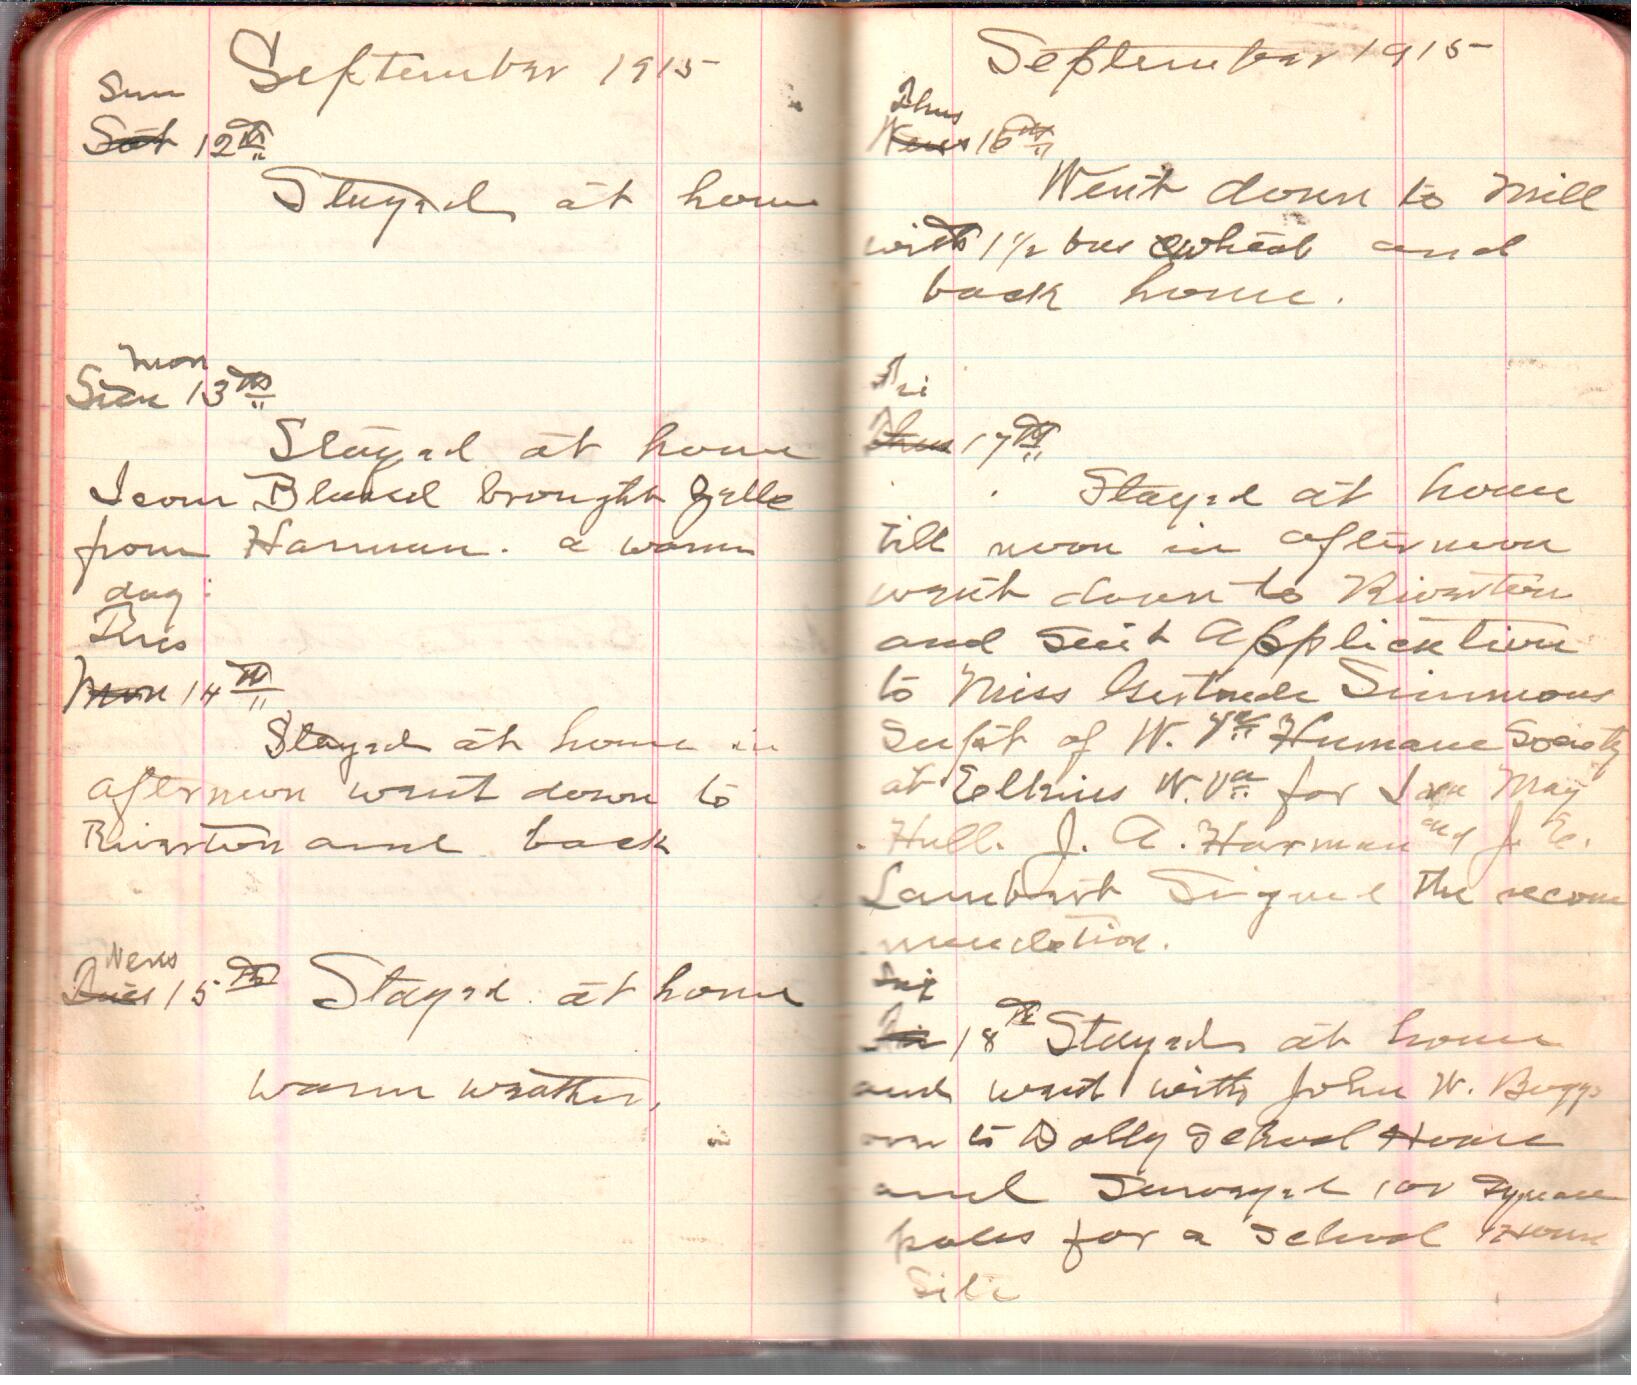 September 1915
Sun
Sat 12th
Stayed at home
Mon
Sun 13th
Stayed at home
Isom brought
from Harman. a warm
day.
Tues
Mon 14th
Stayed at home in
afternoon went down to
Riverton and back
Wens
Tues 15th Stayed at home
warm weather.
September 1915
Thus
Wens 16th
Went down to Mill
with 1 1/2 bus wheat and
back home.
Fri
Thus 17th
Stayed at home
till noon in afternoon
went down to Riverton
and sent Application
to Miss Gertrude Simmons
Supt of W. Va Humane Society
at Elkins W. Va for May
Hull. J. A. Harman and J. E.
Lambert Signed the recom
mendation.
Fri 18th Stayed at home
and went with John W. Boggs
over to Dolly School House
and Surveyed 101 square
poles for a School House
Site